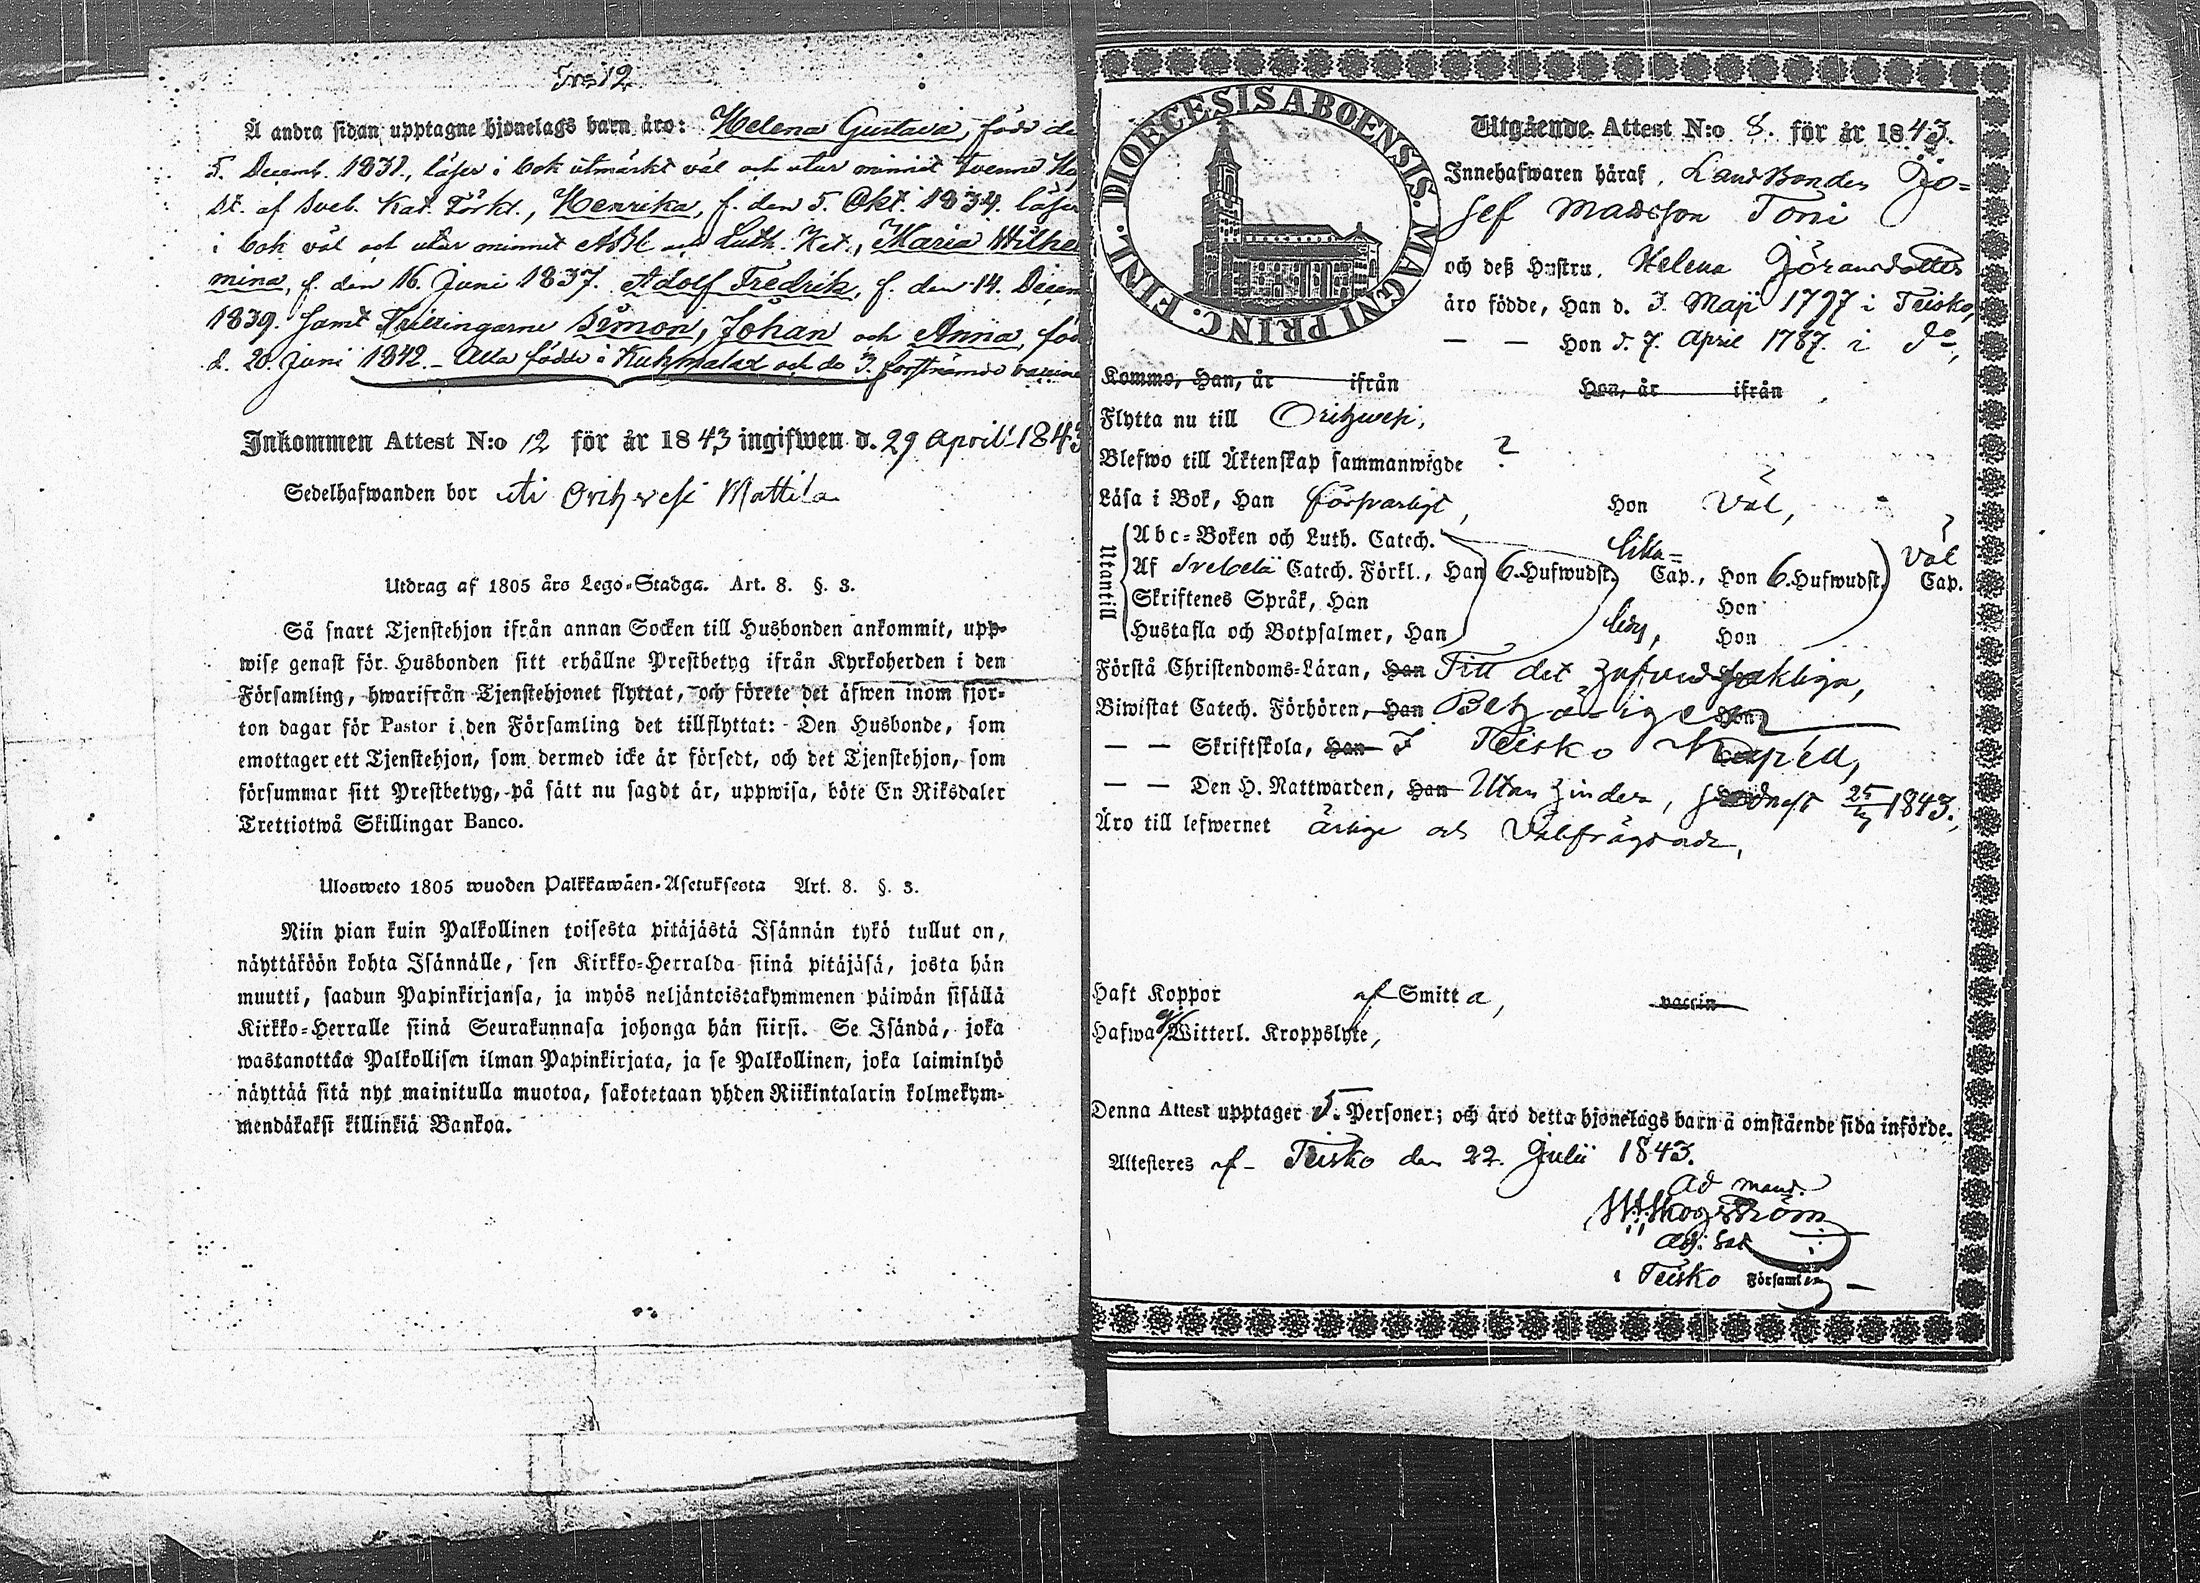 12
Å andra sidan upptagne hjonelags barn äro: Helena Gustava, född de
5. Decemb. 1831, läser i bok utmärkt väl och utur minnet tvenne
St. af Sveb. Kat. Förkl., Henrika, f. den 5. Okt. 1834. läser
i bok väl och utur minnet ABC och Luth. Kat., Maria Wilhel
mina, f. den 16. Juni 1837. Adolf Fredrik, f. den 14. Decem
1839. samt Trillingarne Simon, Johan och Anna, föd
d. 20. Juni 1842. - Alla födde i Kuhmalax och de 3. förstnämde
Inkommen Attest N:o 12 för år 1843 ingifwen d. 29 April 1843
Sedelhafwanden bor uti Orihvesi Mattila
Utdrag af 1805 års Lego-Stadga. Art. 8. §. 3.
Så snart Tjenstehjon ifrån annan Socken till Husbonden ankommit, upp-
wise genast för Husbonden sitt erhållne Prestbetyg ifrån Kyrkoherden i den
Församling, hwarifrån Tjenstehjonet flyttat, och förete det äfwen inom fjor-
ton dagar för Pastor i den Församling det tillflyttat: Den Husbonde, som
emottager ett Tjenstehjon, som dermed icke är försedt, och det Tjenstehjon, som
försummar sitt Prestbetyg, på sätt nu sagdt är, uppwisa, böte En Riksdaler
Trettiotwå Skillingar Banco.
Ulosweto 1805 wuoden Palkkawäen-Asetuksesta Art. 8. §. 3.
Niin pian kuin Palkollinen toisesta pitäjästä Isännän tykö tullut on,
näyttäköön kohta Isännälle, sen Kirkko-Herralda siinä pitäjäsä, josta hän
muutti, saadun Papinkirjansa, ja myös neljäntoistakymmenen päiwän sisällä
Kirkko-Herralle siinä Seurakunnasa johonga hän siirsi. Se Isändä, joka
wastanottaa Palkollisen ilman Papinkirjata, ja se Palkollinen, joka laiminlyö
näyttää sitä nyt mainitulla muotoa, sakotetaan yhden Riikintalarin kolmekym-
mendäkaksi killinkiä Bankoa.
DIOECESIS ABOENSIS. MAGNI PRINC. FINL.
Utgående Attest N:o 8. för år 1843.
Innehafwaren häraf, Landbonden Jo=
sef Madsson Toni
och deß Hustru, Helena Jöransdotter
äro födde, Han d. 3. Maji 1797 i Teisko,
— — Hon d. 7. April 1787. i do,
Kommo, Han, år ifrån Hon, år ifrån
Flytta nu till Orihwesi,
Blefwo till Äktenskap sammanwigde ?
Läsa i Bok, Han försvarligt, Hon Väl,
Utantill
Abc-Boken och Luth. Catech.
Af Svebelii Catech. Förkl., Han 6. Hufwudst. lika= Cap., Hon 6. Hufwudst. Väl Cap.
Skriftenes Språk, Han Hon
Hustafla och Botpsalmer, Han Hon
Förstå Christendoms-Läran, Han Till det hufvudsakliga,
Biwistat Catech. Förhören, Han Hon
— — Skriftskola, Han I Teisko Kapell,
— — Den H. Nattwarden, Han Utan hinder, sednast 1843.
Äro till lefwernet ärlige och Välfrägdade,
Haft Koppor af Smitta, vaccin
Hafwa ej Witterl. Kroppslyte,
Denna Attest upptager 5. Personer; och äro detta hjonelags barn å omstående sida införde.
Attesteres af Teisko den 22. Julii 1843.
Ad mand.
Skogström
adj. Sac
i Teisko Församling